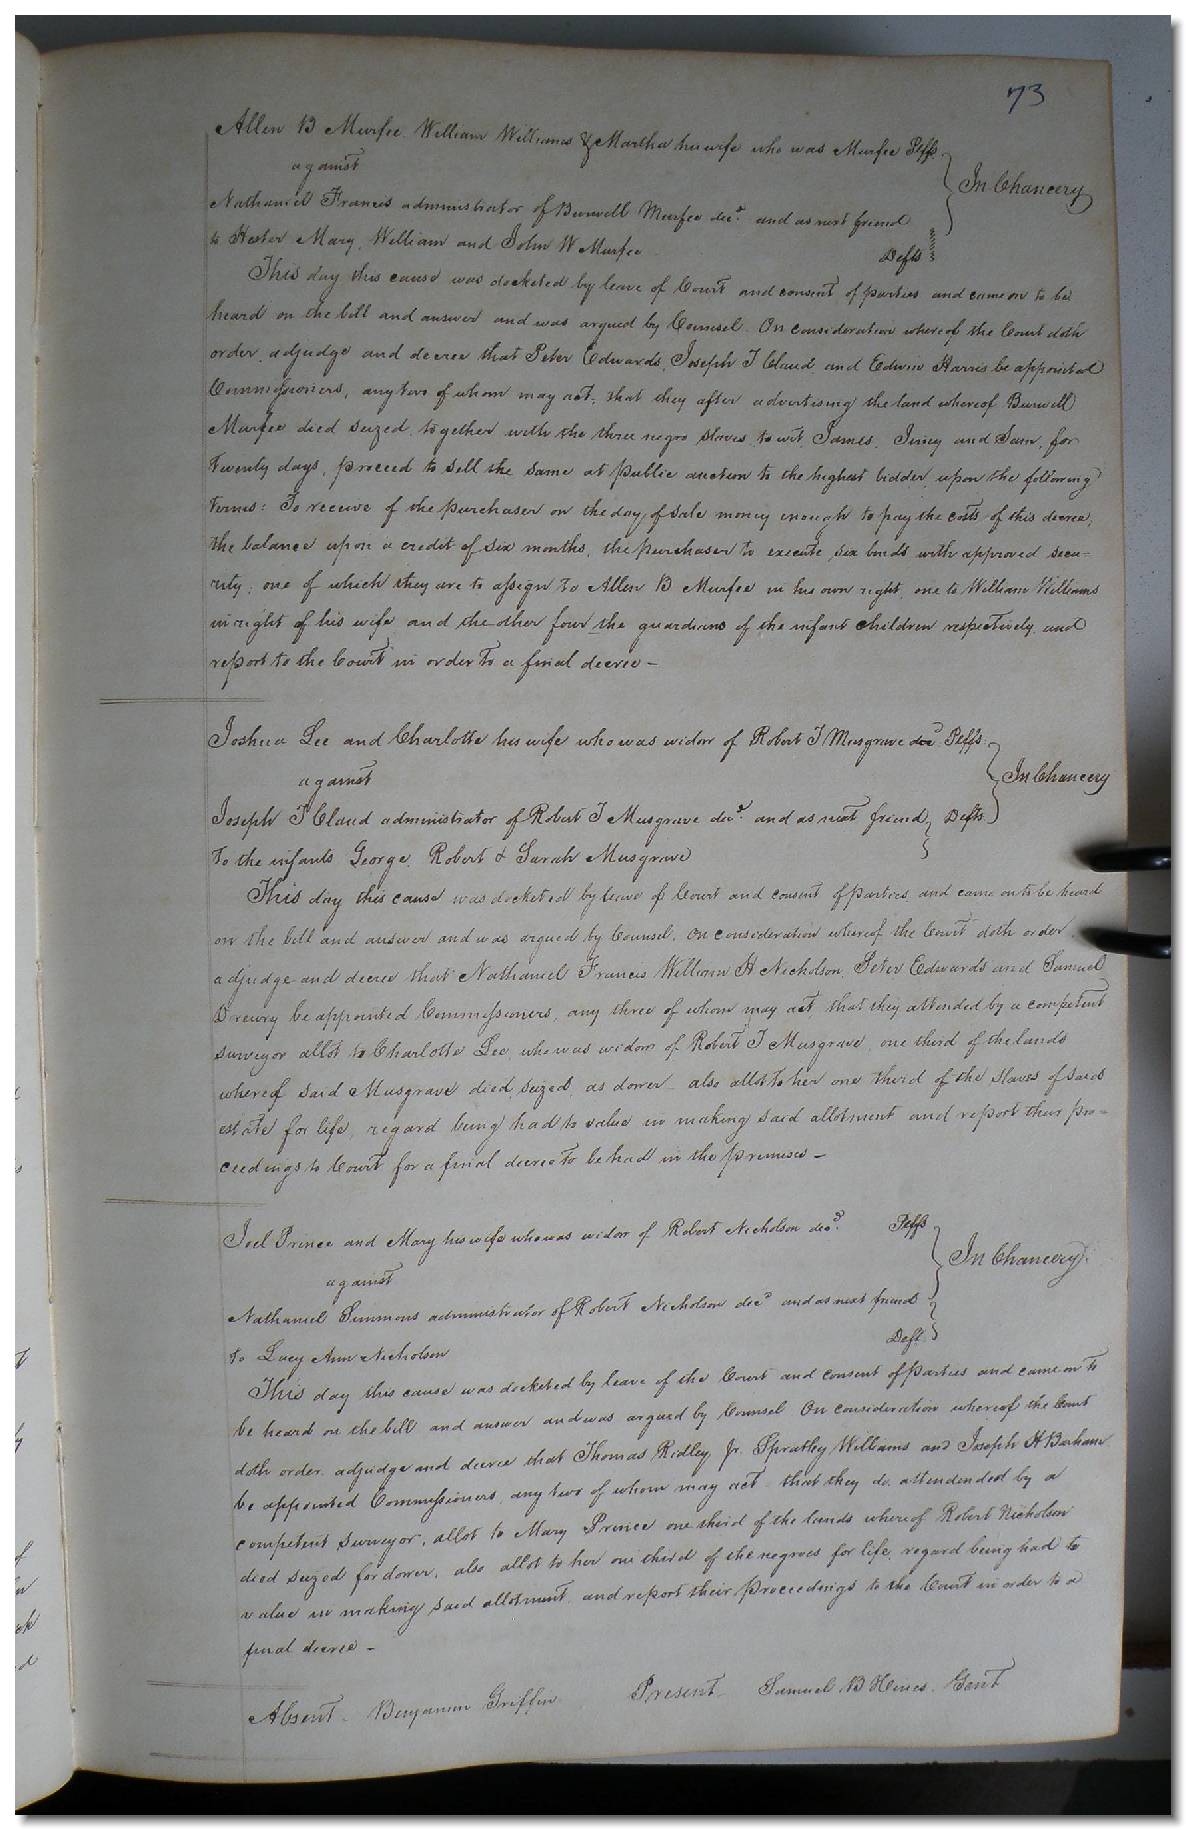 73
Allen B Murfee William Williams & Martha his wife who was Murfee Plffs
against
In Chancery
Nathaniel Francis administrator of Burwell Murfee decd. and as next friend
to Hester Mary, William and John W Murfee Defts
This day this cause was docketed by leave of Court and consent of parties and came on to be
heard on the bill and answer and was argued by Counsel. On consideration whereof the Court doth
order, adjudge and decree that Peter Edwards, Joseph T Claud and Edwin Harris be appointed
Commissioners, any two of whom may act; that they after advertising the land whereof Burwell
Murfee died seized, together with the three negro slaves, to wit, James, Jincy and Sam, for
twenty days, proceed to sell the same at public auction to the highest bidder upon the following
terms: To receive of the purchaser on the day of sale money enough to pay the costs of this decree,
the balance upon a credit of six months, the purchaser to execute six bonds with approved secu-
rity; one of which they are to assign to Allen B Murfee in his own right, one to William Williams
in right of his wife and the other four the guardians of the infant children respectively and
report to the Court in order to a final decree –
Joshua Lee and Charlotte his wife who was widow of Robert T Musgrave decd Plffs.
against
In Chancery
Joseph T Claud administrator of Robert T Musgrave decd. and as next friend Defts
to the infants George, Robert & Sarah Musgrave
This day this cause was docketed by leave of Court and consent of parties, and came on to be heard
on the bill and answer and was argued by Counsel, on consideration whereof the Court doth order,
adjudge and decree that Nathaniel Francis William H Nicholson, Peter Edwards and Samuel
Drewry be appointed Commissioners, any three of whom may act, that they attended by a competent
surveyor allot to Charlotte Lee, who was widow of Robert T Musgrave, one third of the lands
whereof said Musgrave died seized, as dower also allot to her one third of the slaves of said
estate for life, regard being had to value in making said allotment and report their pro-
ceedings to Court for a final decree to be had in the premises –
Joel Prince and Mary his wife who was widow of Robert Nicholson decd. Plffs
against
In Chancery.
Nathaniel Simmons administrator of Robert Nicholson decd and as next friend
to Lucy Ann Nicholson Deft.
This day this cause was docketed by leave of the Court and consent of parties and came on to
be heard on the bill and answer and was argued by Counsel On consideration whereof the Court
doth order, adjudge and decree that Thomas Ridley Jr. Spratley Williams and Joseph H Barham
be appointed Commissioners, any two of whom may act that they do, attendended by a
competent surveyor, allot to Mary Prince one third of the lands whereof Robert Nicholson
died seized for dower, also allot to her one third of the negroes for life, regard being had to
value in making said allotment, and report their proceedings to the Court in order to a
final decree –
Absent – Benjamin Griffin Present – Samuel B Hines, Gent